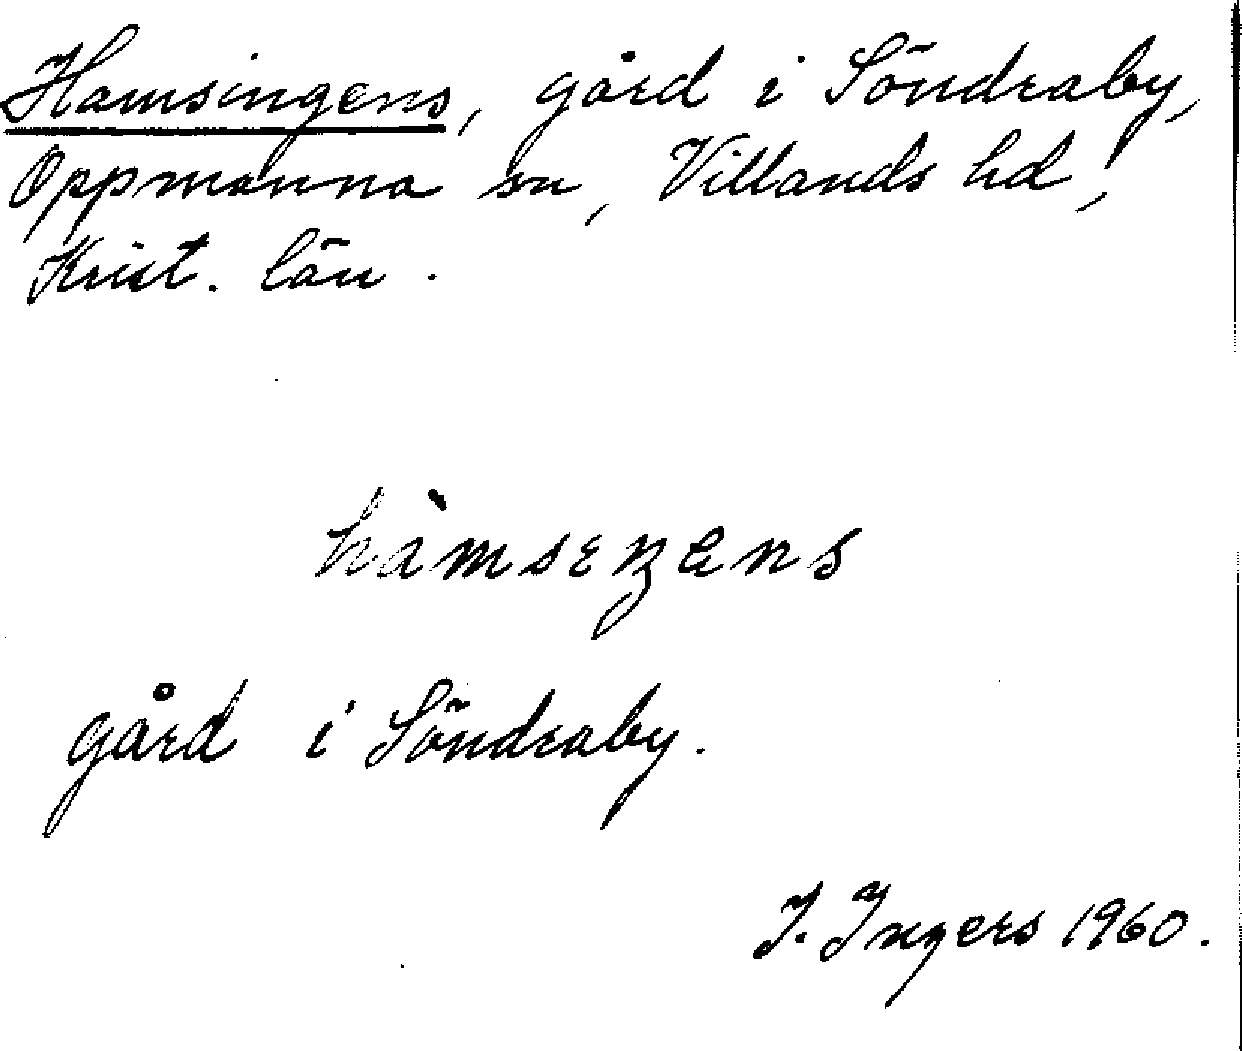 Hamsingens, gård i Söndraby,
Oppmanna sn, Villands hd,
Krist. län.
hàmsɛŋens
gård i Söndraby.
I. Ingers 1960.